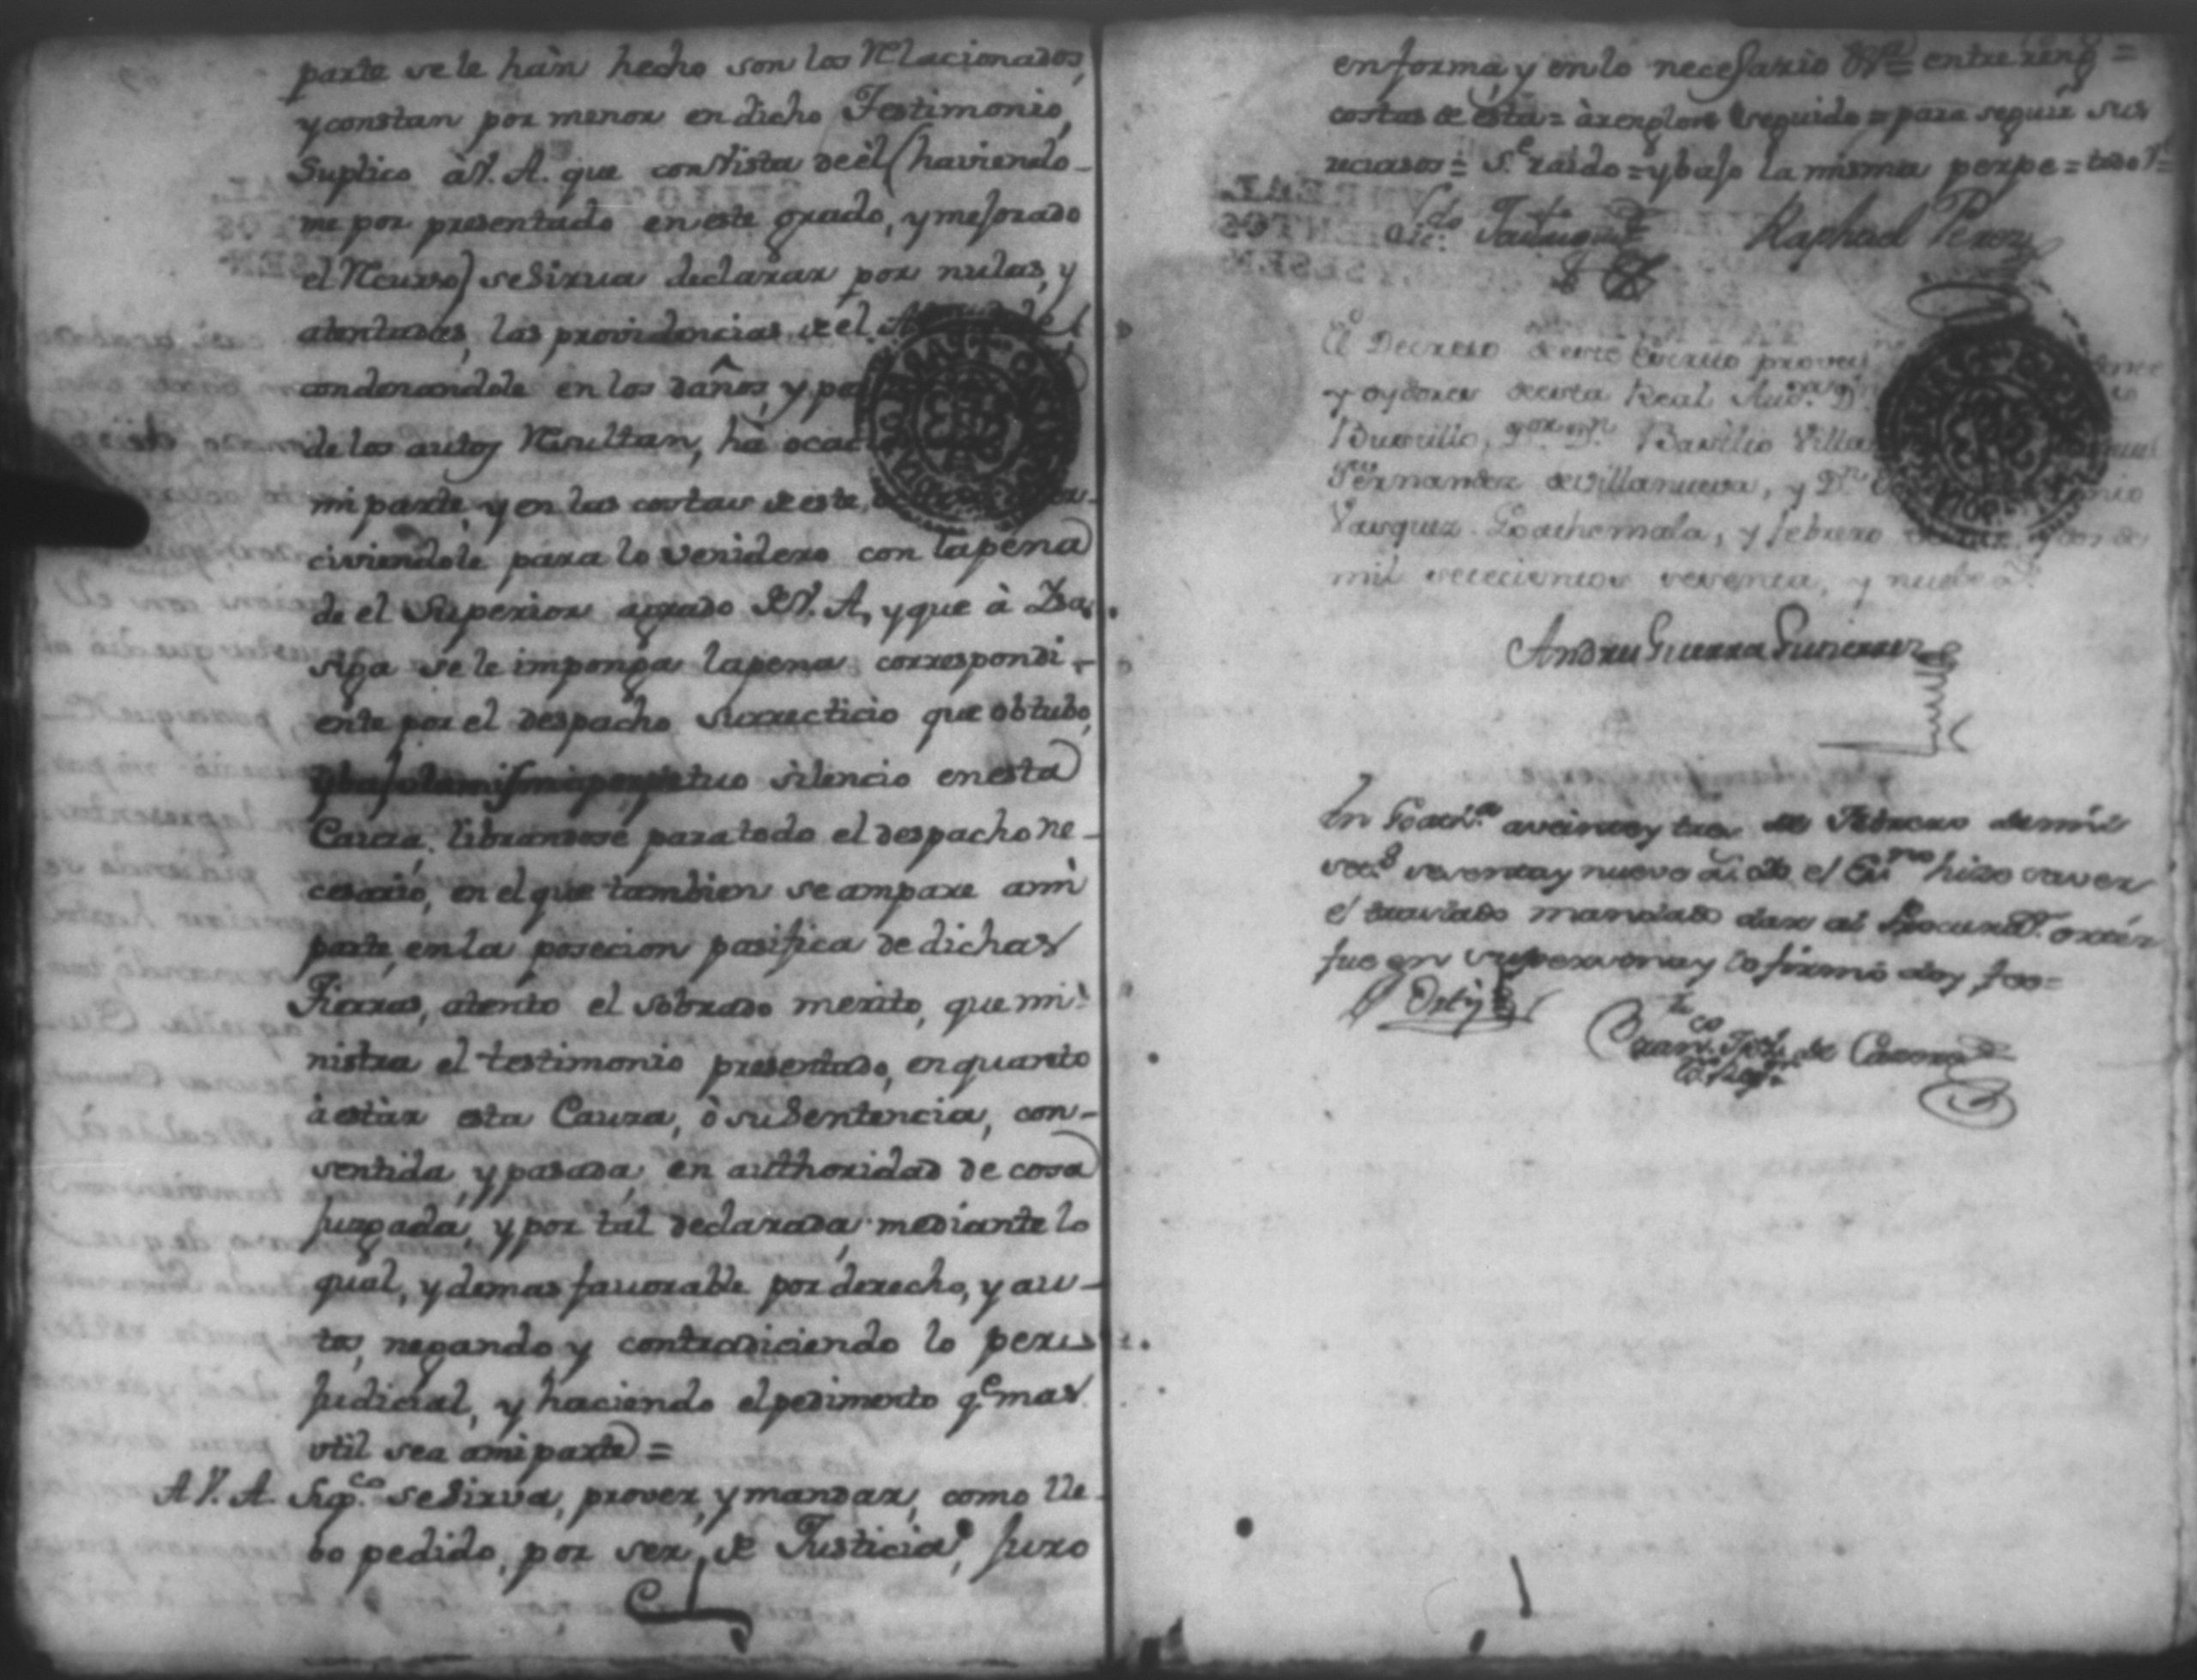 parte se le hàn hecho son los Relacionados,
y constan por menor en dicho Testimonio,
Suplico à V. A. que con Vista de èl (haviendo-
me por presentado en este grado, y mejorado
el Recurso) se Sirva declarar por nulas, y
atentadas, las providencias de él
condenandole en los daños, y
de los autos Resultan, hà
mi parte, y en las costas de este,
civiendole para lo venidero con la pena
de el Superior agrado de V. A, y que à Za
se le imponga la pena correspondi-
ente por el despacho surrecticio que obtubo,
y bajo la misma perpetuo silencio en esta
Causa, librandose para todo el despacho ne-
cesario, en el que tambien se ampare a mi
parte, en la posecion pasifica de dichas
Tierras, atento el sobrado merito, que mi-
nistra el testimonio presentado, en quanto
à estàr esta Causa, ò su Sentencia, con-
sentida, y pasada, en authoridad de cosa
Juzgada, y por tál declarada; mediante lo
qual, y demas favorable por derecho, y au-
tos, negando y contradiciendo lo per-
Judicial, y haciendo el pedimento q.e mas
vtil sea a mi parte =
A V. A. Sup.co se Sirva, prover, y mandar, como lle-
bo pedido, por ser de Justicia, Juro
en forma, y en lo necesario entre reng =
costas de esta = à renglon seguido = para seguir sus
recursos = S.e raido = y bajo la misma perpe = todo V.e
Raphael Perez
El Decreto de este Escrito
y oydores de esta Real Aud.a D.n
D.n Basilio Villa
Fernandez de Villanueva, y D.n
Vasquez. Goathemala, y febrero
mil setecientos sesenta, y nuebe a.s
Andres Guerra Gutierrez
En Goath.a a veinte y tres de Febrero de mil
set.s sesenta y nueve a.s Yo el Es.no hize saver
el traslado mandado dar al Procurad.r
fue en su persona y lo firmó doy fee =
Ortiz